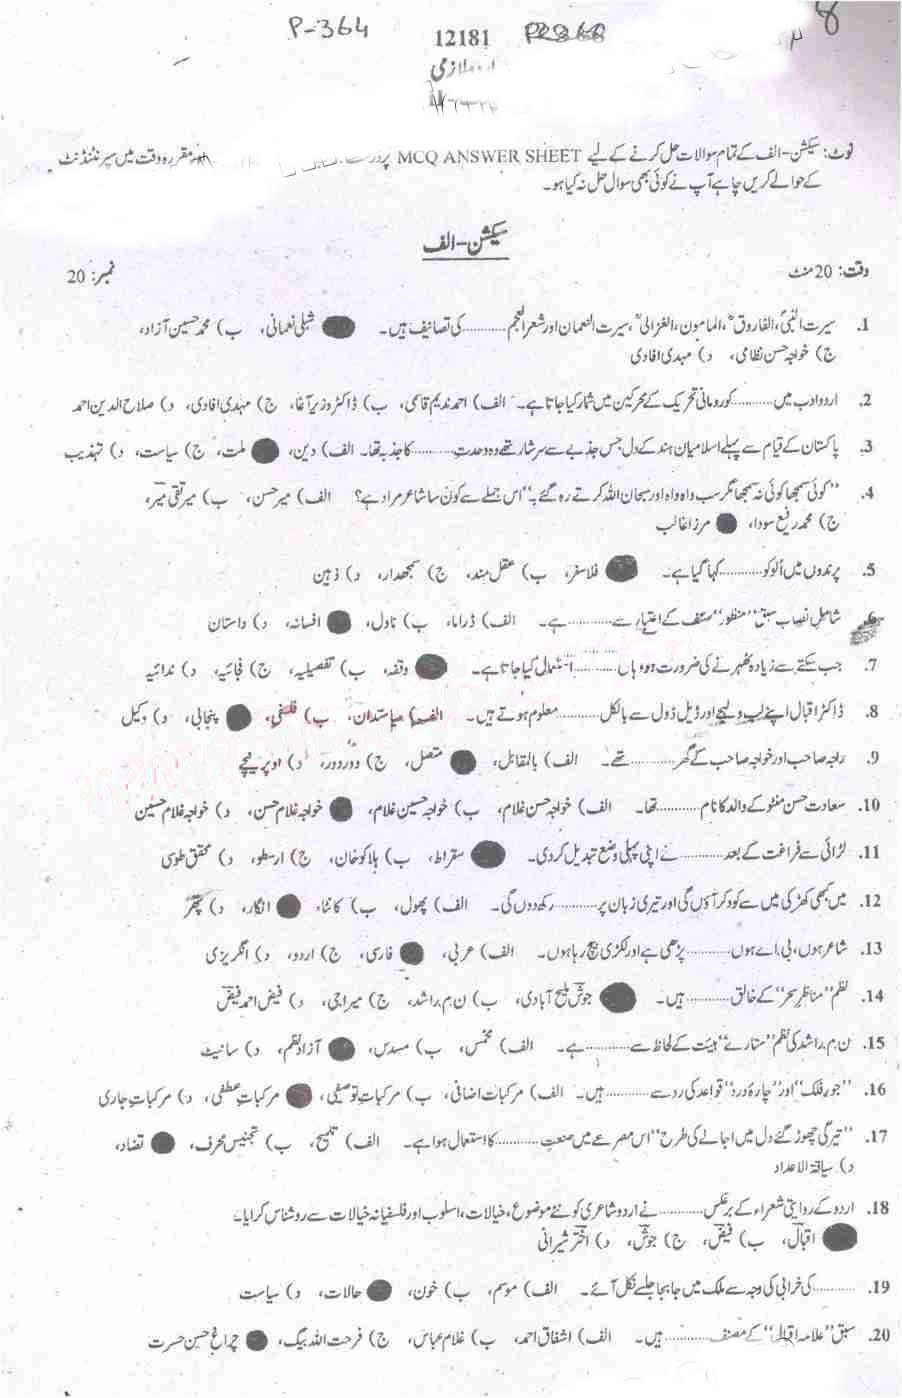 P-364 12181 8
اردو لازمی
نوٹ: سیکشن-الف کے تمام سوالات حل کرنے کے لیے MCQ ANSWER SHEET پر مقررہ وقت میں سپرنٹنڈنٹ
کے حوالے کریں چاہے آپ نے کوئی بھی سوال حل نہ کیا ہو۔
سیکشن-الف
وقت: 20 منٹ نمبر: 20
1. سیرت النبیؐ، الفاروقؓ، المامون، الغزالیؒ، سیرت النعمان اور شعر العجم .......... کی تصانیف ہیں۔ شبلی نعمانی، ب) محمد حسین آزاد،
ج) خواجہ حسن نظامی، د) مہدی افادی
2. اردو ادب میں .......... کو رومانی تحریک کے محرکین میں شمار کیا جاتا ہے۔ الف) احمد ندیم قاسمی، ب) ڈاکٹر وزیر آغا، ج) مہدی افادی، د) صلاح الدین احمد
3. پاکستان کے قیام سے پہلے اسلامیان ہند کے دل جس جذبے سے سرشار تھے وہ وحدتِ .......... کا جذبہ تھا۔ الف) دین، ملت، ج) سیاست، د) تہذیب
4. "کوئی سمجھا کوئی نہ سمجھا مگر سب واہ واہ اور سبحان اللہ کرتے رہ گئے۔" اس جملے سے کون سا شاعر مراد ہے؟ الف) میر حسن، ب) میر تقی میر،
ج) محمد رفیع سودا، مرزا غالب
5. پرندوں میں اُلو کو .......... کہا گیا ہے۔ فلاسفر، ب) عقل مند، ج) سمجھدار، د) ذہین
6. شامل نصاب سبق "منظور" صنف کے اعتبار سے .......... ہے۔ الف) ڈراما، ب) ناول، افسانہ، د) داستان
7. جب سکتے سے زیادہ ٹھہرنے کی ضرورت ہو وہاں .......... استعمال کیا جاتا ہے۔ وقفہ، ب) تفصیلیہ، ج) فجائیہ، د) ندائیہ
8. ڈاکٹر اقبال اپنے لب و لہجے اور ڈیل ڈول سے بالکل .......... معلوم ہوتے ہیں۔ الف) سیاستدان، ب) فلسفی، پنجابی، د) وکیل
9. راجہ صاحب اور خواجہ صاحب کے گھر .......... تھے۔ الف) بالمقابل، متصل، ج) دور دور، د) اوپر نیچے
10. سعادت حسن منٹو کے والد کا نام .......... تھا۔ الف) خواجہ حسن غلام، ب) خواجہ حسین غلام، خواجہ غلام حسن، د) خواجہ غلام حسین
11. لڑائی سے فراغت کے بعد .......... نے اپنی پہلی وضع تبدیل کر دی۔ سقراط، ب) ہلاکو خان، ج) ارسطو، د) محقق طوسی
12. میں بھی کھڑکی میں سے کود کر آؤں گی اور تیری زبان پر .......... رکھ دوں گی۔ الف) پھول، ب) کانٹا، انگار، د) پتھر
13. شاعر ہوں، بی اے ہوں .......... پڑھی ہے اور لکڑی بیچ رہا ہوں۔ الف) عربی، فارسی، ج) اردو، د) انگریزی
14. نظم "مناظرِ سحر" کے خالق .......... ہیں۔ جوش ملیح آبادی، ب) ن م راشد، ج) میراجی، د) فیض احمد فیض
15. ن م راشد کی نظم "ستارے" ہیئت کے لحاظ سے .......... ہے۔ الف) مخمس، ب) مسدس، آزاد نظم، د) سانیٹ
16. "جورِ فلک" اور "چارۂ درد" قواعد کی رو سے .......... ہیں۔ الف) مرکبات اضافی، ب) مرکباتِ توصیفی، مرکباتِ عطفی، د) مرکباتِ جاری
17. "تیرگی چھوڑ گئے دل میں اجالے کی طرح" اس مصرعے میں صنعتِ .......... کا استعمال ہوا ہے۔ الف) تلمیح، ب) تجنیس محرف، تضاد،
د) سیاقۃ الاعداد
18. اردو کے روایتی شعراء کے برعکس .......... نے اردو شاعری کو نئے موضوع، خیالات، اسلوب اور فلسفیانہ خیالات سے روشناس کرایا۔
اقبال، ب) فیض، ج) جوش، د) اختر شیرانی
19. .......... کی خرابی کی وجہ سے ملک میں جابجا جلسے نکل آئے۔ الف) موسم، ب) خون، حالات، د) سیاست
20. سبق "علامہ اقبال" کے مصنف .......... ہیں۔ الف) اشفاق احمد، ب) غلام عباس، ج) فرحت اللہ بیگ، چراغ حسن حسرت